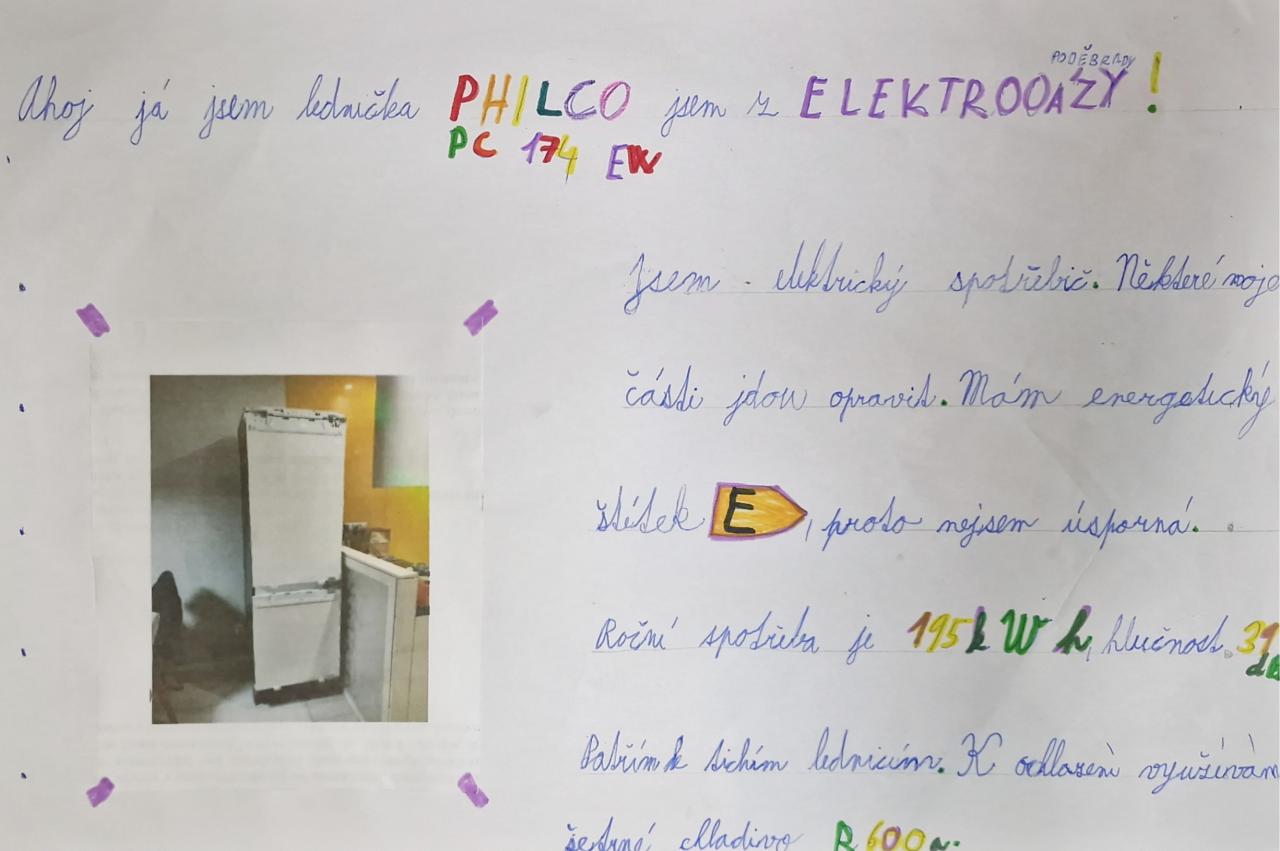 Ahoj já jsem lednička PHILCO jsem z ELEKTROOÁZY!
PODĚBRADY
PC 174 EW
Jsem elektrický spotřebič. Některé moje
části jdou opravit. Mám energetický
štítek E, proto nejsem úsporná.
Roční spotřeba je 195 kWh, hlučnost 39
dB
Patřím k tichím lednicím. K ochlazení využívám
šetrné chladivo R600a.